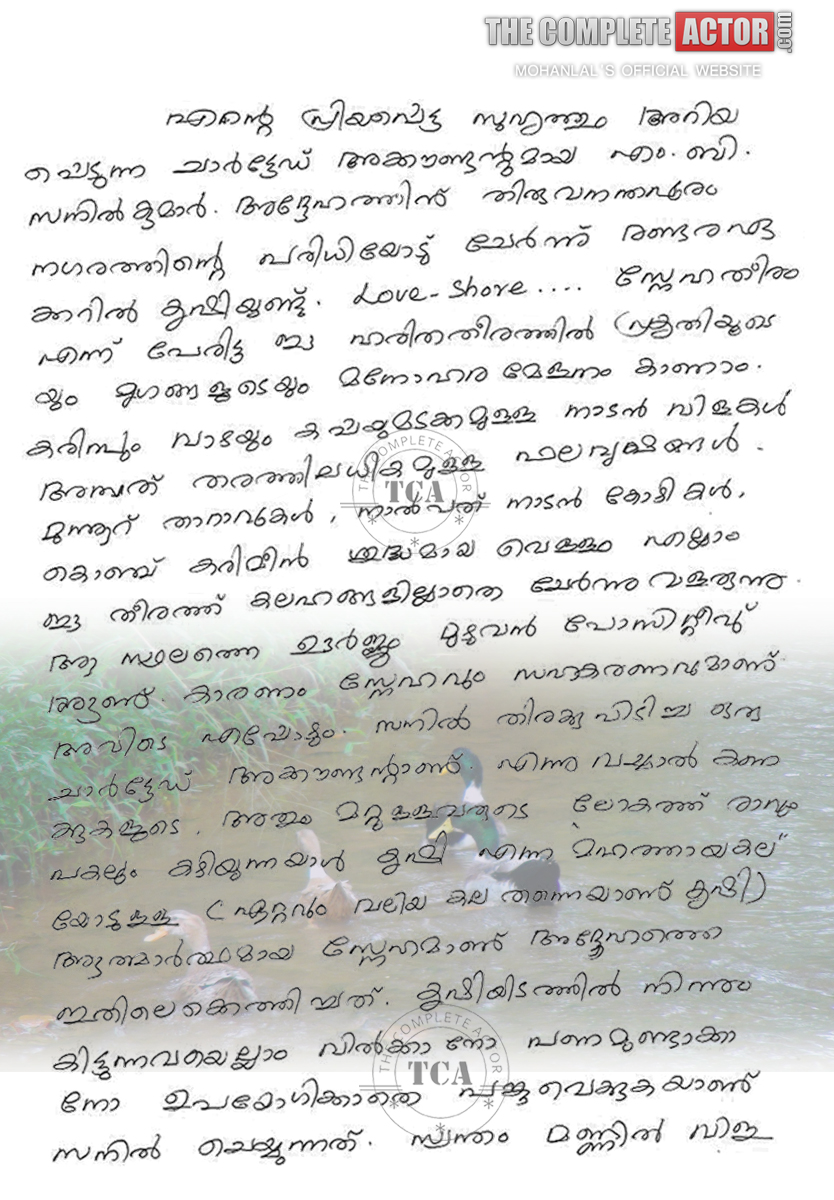 THE COMPLETE ACTOR.com
MOHANLAL'S OFFICIAL WEBSITE
എന്റെ പ്രിയപ്പെട്ട സുഹൃത്തും അറിയ
പ്പെടുന്ന ചാർട്ടേഡ് അക്കൗണ്ടന്റുമായ എം. ബി.
സനിൽകുമാർ. അദ്ദേഹത്തിന് തിരുവനന്തപുരം
നഗരത്തിന്റെ പരിധിയോടു ചേർന്ന് രണ്ടര ഏ
ക്കറിൽ കൃഷിയുണ്ട്. Love-Shore .... സ്നേഹതീരം
എന്ന് പേരിട്ട ഈ ഹരിതതീരത്തിൽ പ്രകൃതിയുടെ
യും മൃഗങ്ങളുടെയും മനോഹര മേളനം കാണാം.
കരിമ്പും വാഴയും കപ്പയുമടക്കമുള്ള നാടൻ വിളകൾ
അമ്പത് തരത്തിലധികമുള്ള ഫലവൃക്ഷങ്ങൾ.
മുന്നൂറ് താറാവുകൾ, നാൽപത് നാടൻ കോഴികൾ,
കൊഞ്ച് കരിമീൻ ശുദ്ധമായ വെള്ളം എല്ലാം
ഈ തീരത്ത് കലഹങ്ങളില്ലാതെ ചേർന്നു വളരുന്നു.
ആ സ്ഥലത്തെ ഊർജ്ജം മുഴുവൻ പോസിറ്റീവ്
ആണ്. കാരണം സ്നേഹവും സഹകരണവുമാണ്
അവിടെ എപ്പോഴും. സനിൽ തിരക്കു പിടിച്ച ഒരു
ചാർട്ടേഡ് അക്കൗണ്ടന്റാണ്. എന്നു വച്ചാൽ കണ
ക്കുകളുടെ, അതും മറ്റുള്ളവരുടെ ലോകത്ത് രാവും
പകലും കഴിയുന്നയാൾ കൃഷി എന്ന മഹത്തായകല"
യോടുള്ള (ഏറ്റവും വലിയ കല തന്നെയാണ് കൃഷി)
ആത്മാർത്ഥമായ സ്നേഹമാണ് അദ്ദേഹത്തെ
ഇതിലെക്കെത്തിച്ചത്. കൃഷിയിടത്തിൽ നിന്നും
കിട്ടുന്നവയെല്ലാം വിൽക്കാനോ പണമുണ്ടാക്കാ
നോ ഉപയോഗിക്കാതെ പങ്കുവെക്കുകയാണ്
സനിൽ ചെയ്യുന്നത്. സ്വന്തം മണ്ണിൽ വിള
THE COMPLETE ACTOR
TCA
THE COMPLETE ACTOR
TCA